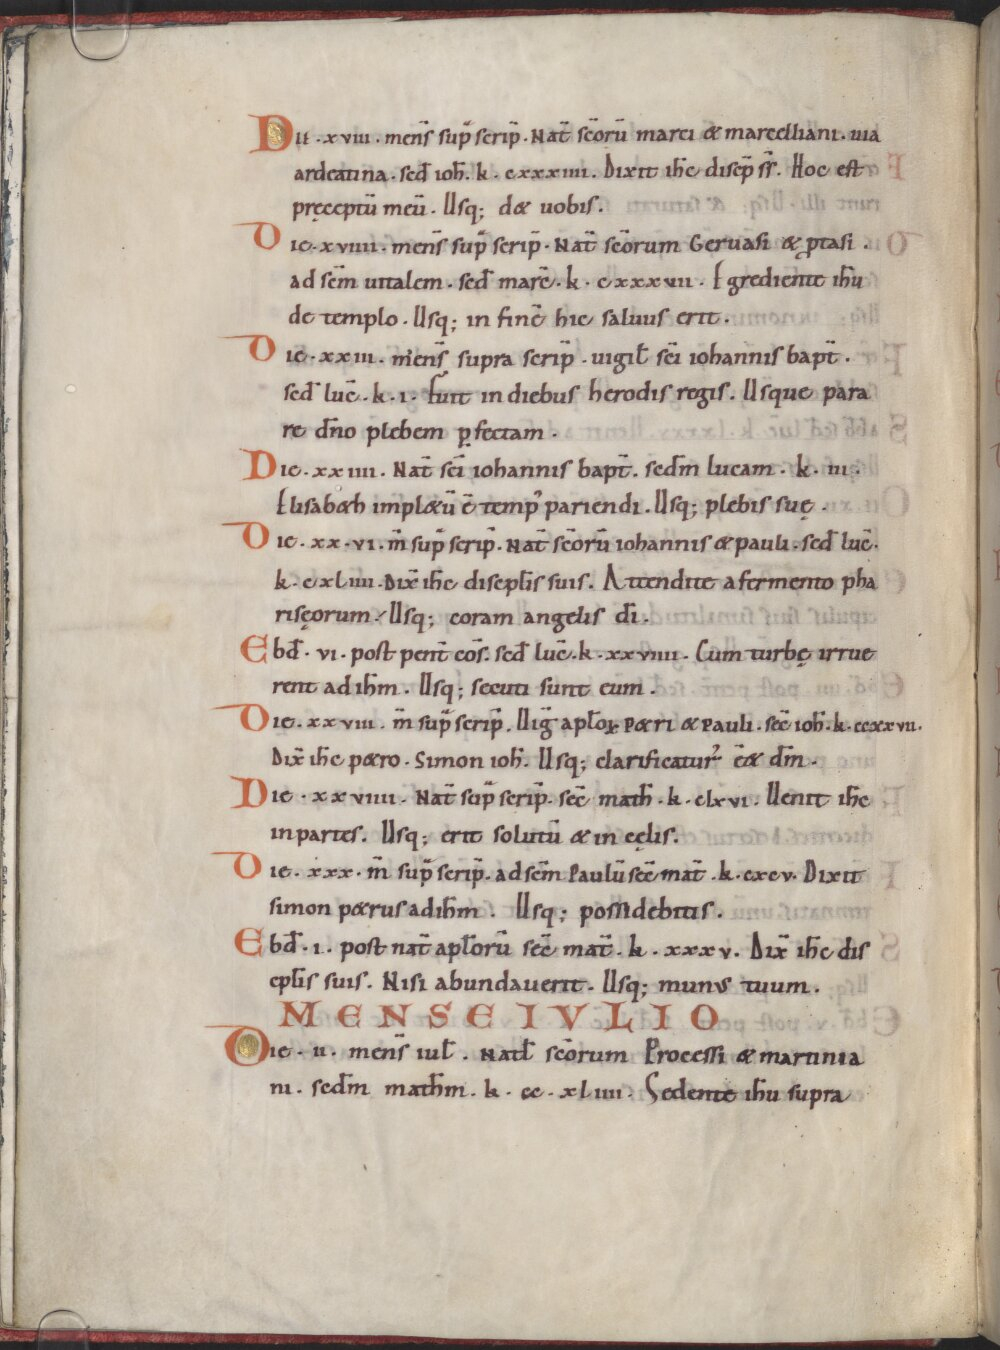 Dii · xviii · menś sup̄ scrip̄ · Nat̄ sc̄orū marci & marcelliani · uia
ardeatina · sed̄ ioh̄ · k · cxxxiiii · Dixit ih̄c discip̄ ss̄ · Hoc est
pręceptū meū · Usq; d& uobis ·
Die · xviiii · menś sup̄ scrip̄ · Nat̄ sc̄orum Geruasi & ꝓtasi ·
ad sc̄m uitalem · sed̄ marc̄ · k · cxxxvii · Egrediente ih̄u
de templo · Usq; in finē hic saluus erit ·
Die · xxiii · menś supra scrip̄ · uigil̄ sc̄i iohannis bapt̄ ·
sed̄ luc̄ · k · i · Fuit in diebus herodis regis · Usque para
re dn̄o plebem ꝑfectam ·
Die · xxiiii · Nat̄ sc̄i iohannis bapt̄ · sed̄m lucam · k · iii ·
Elisab&h impl&ū ē temp' pariendi · Usq; plebis suę ·
Die · xx · vi · m̄ sup̄ scrip̄ · Nat̄ sc̄orū iohannis & pauli · sed̄ luc̄ ·
k · cxliiii · Dix̄ ih̄c discipl̄is suis · Attendite a fermento pha
risęorum · Usq; coram angelis dī ·
Ebd̄ · vi · post pent̄ cos̄ · sed̄ luc̄ · k · xxviiii · Cum turbę irrue
rent ad ih̄m · Usq; secuti sunt eum ·
Die · xxviii · m̄ sup̄ scrip̄ · Uig̅ apl̄oꝝ P&ri & Pauli · sec̄ ioh̄ · k · ccxxvii ·
Dix̄ ih̄c p&ro · Simon ioh̄ · Usq; clarificatur' ē& dm̄ ·
Die · xxviiii · Nat̄ sup̄ scrip̄ · sec̄ math̄ · k · clxvi · Uenit ih̄c
in partes · Usq; erit solutū & in cęlis ·
Die · xxx · m̄ sup̄ scrip̄ · ad sc̄m Paulū sec̄ mat̄ · k · cxcv · Dixit
simon p&rus ad ih̄m · Usq; possidebitis ·
Ebd̄ · i · post nat̄ apl̄orū sec̄ mat̄ · k · xxxv · Dix̄ ih̄c dis
cipl̄is suis · Nisi abundauerit · Usq; munus tuum ·
MENSE IVLIO
Die · ii · menś iul̄ · Nat̄l sc̄orum Processi & martinia
ni · sed̄m math̄m · k · cc · xliiii · Sedente ih̄u supra